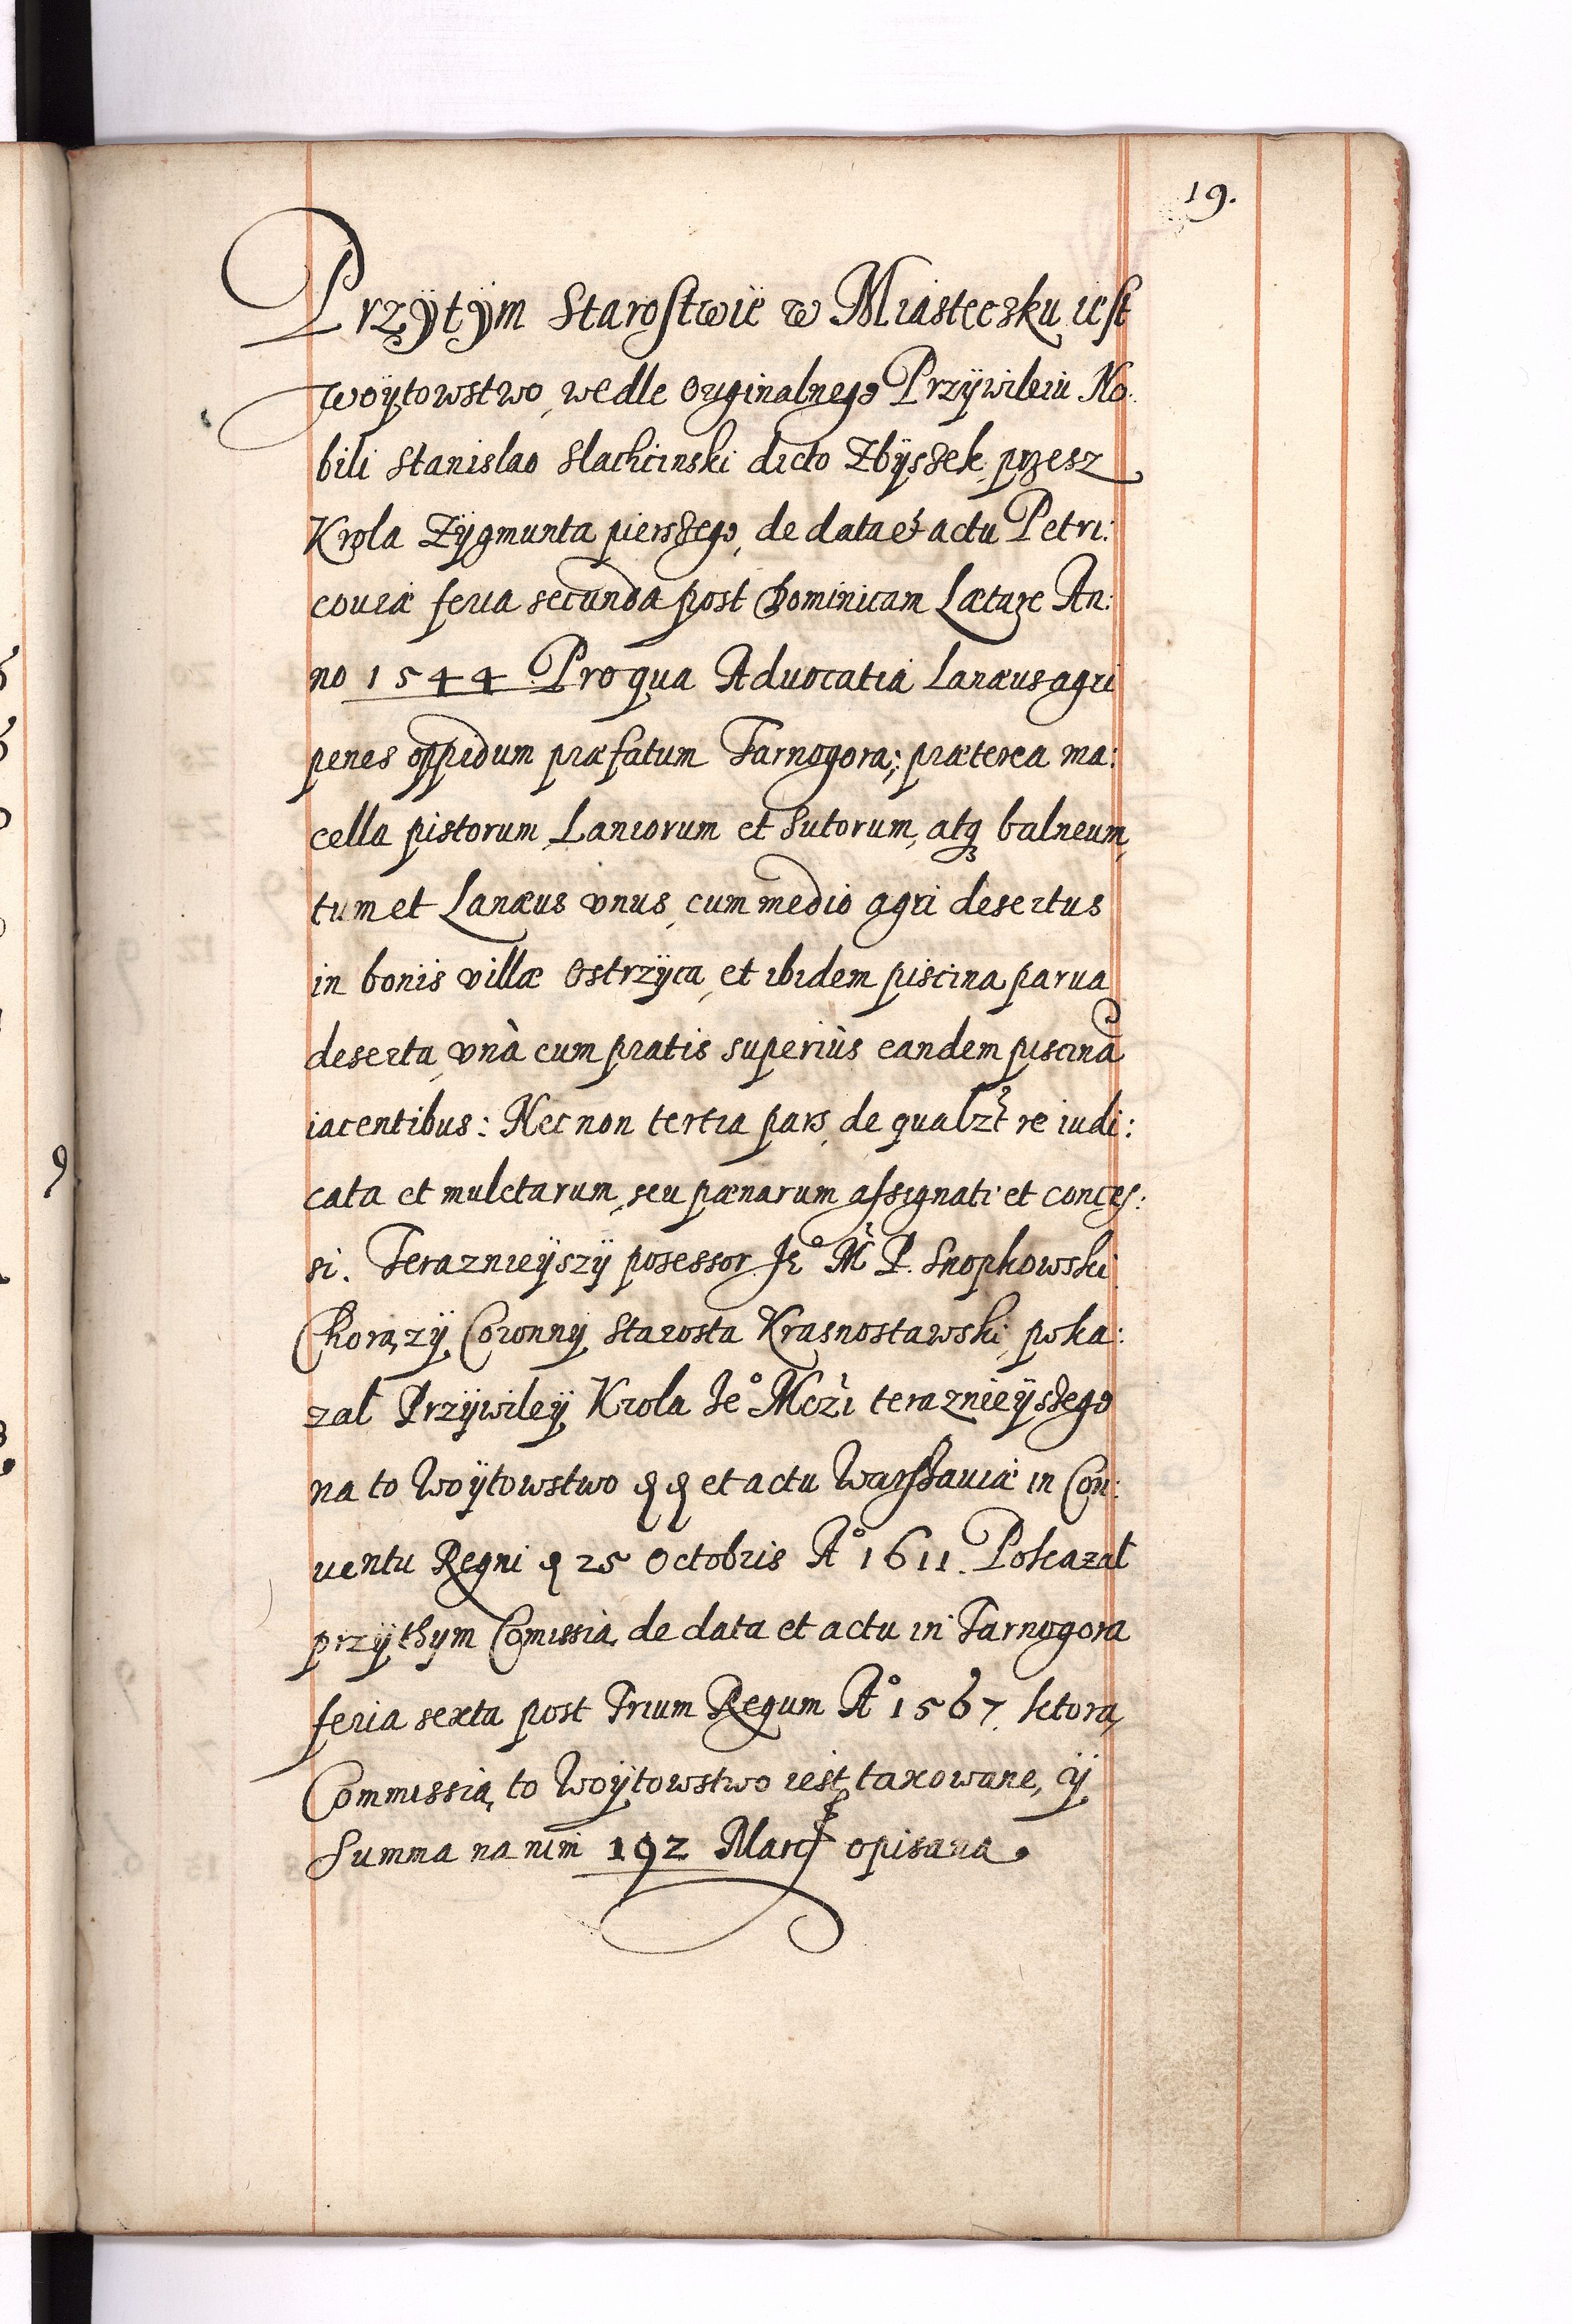 19.
Przÿtÿm Starostwie w Miasteczku iest
woÿtowstwo, wedle Oryginalnego Przÿwileiu No:
bili Stanislao Slachcinski dicto Zbÿszek, przesz
Krola Zÿgmunta pierszego, de data et actu Petri:
couiæ feria secunda post Dominicam Lætare An:
no 1544 Pro qua Aduocatia Lanæus agri
penes oppidum præfatum Tarnogora; præterea ma:
cella pistorum, Laniorum et Sutorum, atq₃ balneum,
tum et Lanæus vnus, cum medio agri desertus
in bonis villæ Ostrzÿca, et ibidem piscina parua
deserta, vnà cum pratis superiùs eandem piscinā
iacentibus: Nec non tertia pars, de qualzt re iudi:
cata et mulctarum, seu pænarum assignati et conces:
si. Teraznieÿszÿ posessor Je° M P. Snopkowski
Chorązÿ Coronnÿ Starosta Krasnostawski, poka:
zał Przÿwileÿ Krola Je° Mczi teraznieÿszego
na to Woÿtowstwo et actu Warszauiæ in Con:
uentu Regni 25 Octobris A° 1611. Pokazał
przÿthym Comissią de data et actu in Tarnogora
feria sexta post Trium Regum A° 1567. ktorą
Commissią, to Woÿtowstwo iest taxowane, ÿ
Summa na nim 192 Marc opisana.